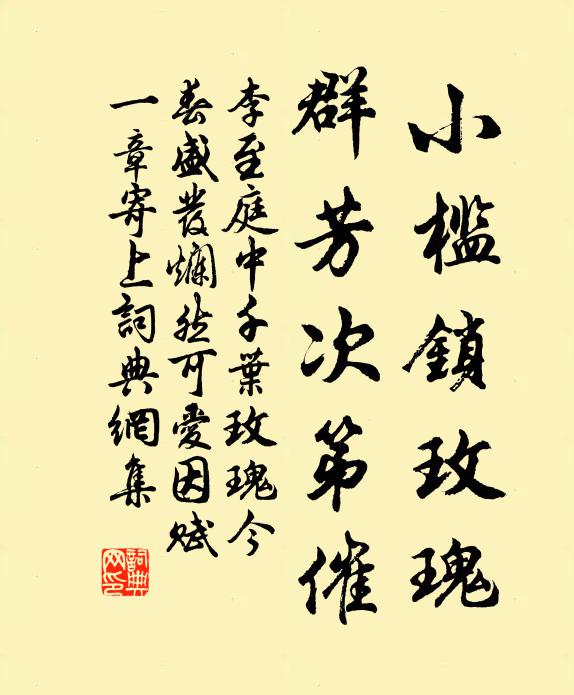 小檻鎖玫瑰
群芳次第催
李至庭中千葉玫瑰今
春盛發爛然可愛因賦
一章寄上詞典網集
詞典
网印